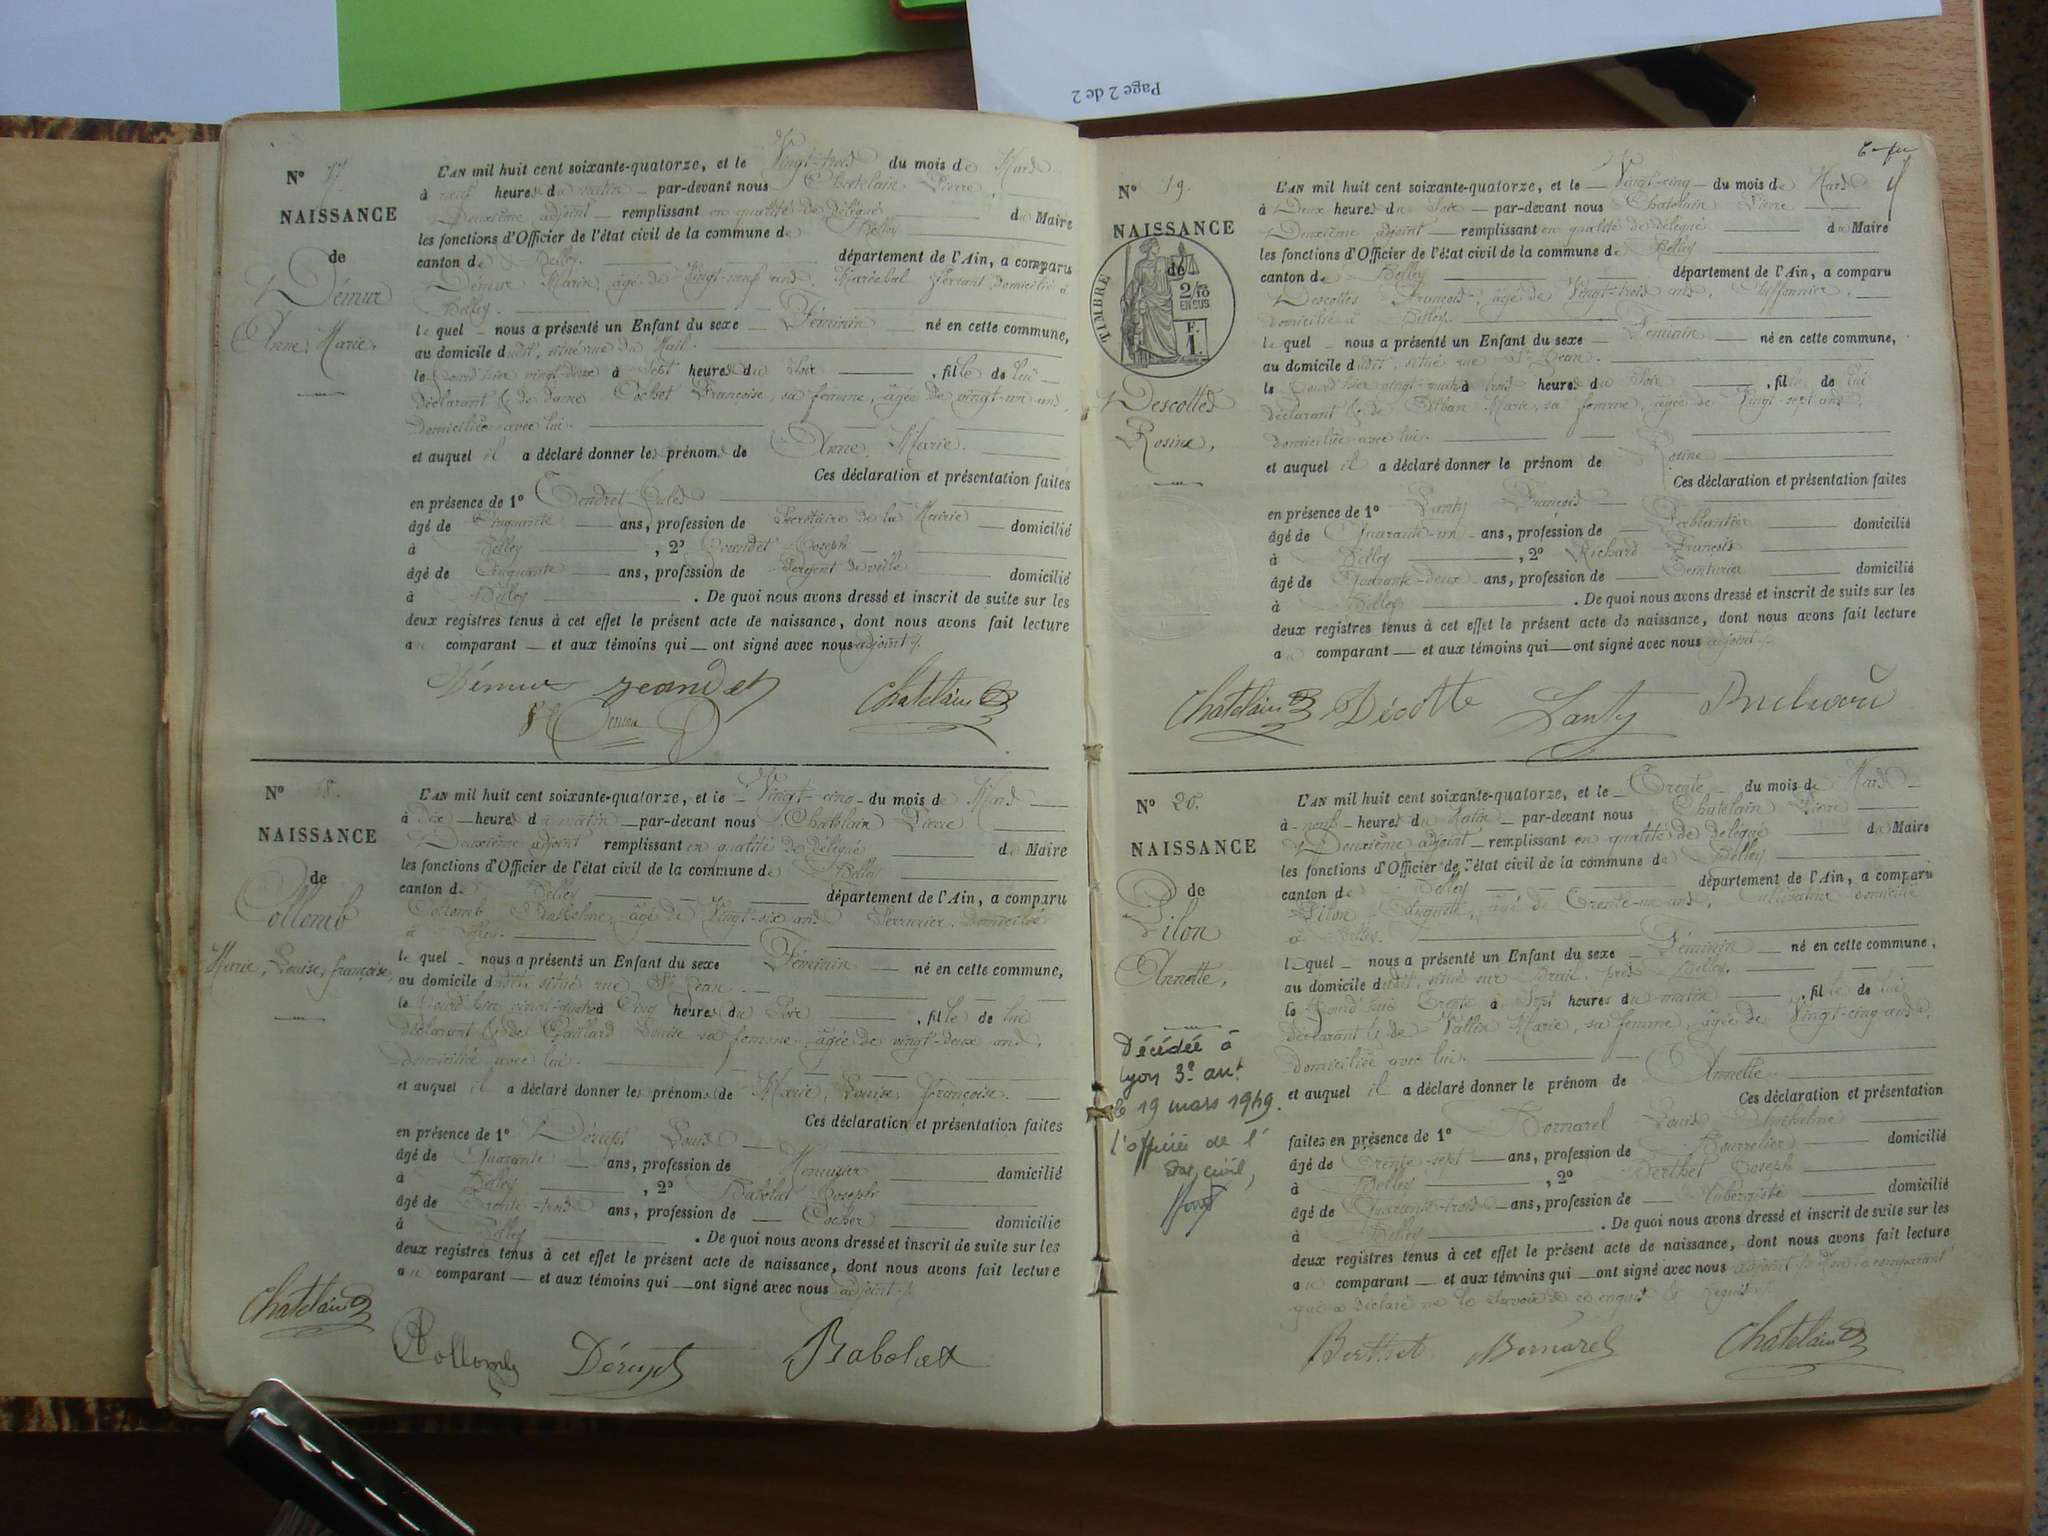 Page 2 de 2
N° 17.
NAISSANCE
de
Démur
Anne, Marie,
L'AN mil huit cent soixante-quatorze, et le Vingt-trois du mois de Mars
à neuf heures du matin par-devant nous Chatelain Pierre
Deuxième adjoint remplissant en qualité de délégué du Maire
les fonctions d'Officier de l'état civil de la commune de Belley
canton de Belley département de l'Ain, a comparu
Démur Marin, âgé de Vingt-neuf ans, Maréchal ferrant, domicilié à
Belley.
lequel nous a présenté un Enfant du sexe Féminin né en cette commune,
au domicile dudit, situé rue du Mail.
le jourd'hier vingt-deux à Sept heures du Soir, fille de lui
déclarant & de dame Cochet Françoise, sa femme, âgée de vingt-un ans,
domiciliée avec lui.
et auquel il a déclaré donner les prénoms de Anne, Marie.
Ces déclaration et présentation faites
en présence de 1° Tendret Jules
âgé de Cinquante ans, profession de Secrétaire de la Mairie domicilié
à Belley, 2° Joseph
âgé de Cinquante ans, profession de Sergent de ville domicilié
à Belley. De quoi nous avons dressé et inscrit de suite sur les
deux registres tenus à cet effet le présent acte de naissance, dont nous avons fait lecture
au comparant et aux témoins qui ont signé avec nous adjoint ./.
Démur
Chatelain
N° 18.
NAISSANCE
de
Collomb
Marie, Louise, françoise,
L'AN mil huit cent soixante-quatorze, et le Vingt-cinq du mois de Mars
à Dix heures du matin par-devant nous Chatelain Pierre
Deuxième adjoint remplissant en qualité de délégué du Maire
les fonctions d'Officier de l'état civil de la commune de Belley
canton de Belley département de l'Ain, a comparu
Collomb Anthelme, âgé de Vingt-six ans, Serrurier, domicilié
à Belley.
lequel nous a présenté un Enfant du sexe Féminin né en cette commune,
au domicile dudit, situé rue St Jean.
le jourd'hier vingt-quatre à Cinq heures du Soir, fille de lui
déclarant & de Gaillard Louise sa femme, âgée de vingt-deux ans,
domiciliée avec lui.
et auquel il a déclaré donner les prénoms de Marie, Louise, françoise.
Ces déclaration et présentation faites
en présence de 1° Dérupt Louis
âgé de Quarante ans, profession de Menuisier domicilié
à Belley, 2° Rabolat Joseph
âgé de Trente-trois ans, profession de Cocher domicilié
à Belley. De quoi nous avons dressé et inscrit de suite sur les
deux registres tenus à cet effet le présent acte de naissance, dont nous avons fait lecture
au comparant et aux témoins qui ont signé avec nous adjoint ./.
Chatelain
Collomb Dérupt Rabolat
N° 19.
NAISSANCE
de
TIMBRE
2/10
EN SUS
F.
1
Descottes
Rosine,
L'AN mil huit cent soixante-quatorze, et le Vingt-cinq du mois de Mars
à Deux heures du Soir par-devant nous Chatelain Pierre
Deuxième adjoint remplissant en qualité de délégué du Maire
les fonctions d'Officier de l'état civil de la commune de Belley
canton de Belley département de l'Ain, a comparu
Descottes François, âgé de Vingt-trois ans, Chiffonnier,
domicilié à Belley.
lequel nous a présenté un Enfant du sexe Féminin né en cette commune,
au domicile dudit, situé rue St Jean.
le jourd'hier vingt-quatre à trois heures du Soir, fille de lui
déclarant & de Alban Marie, sa femme, âgée de Vingt-sept ans,
domiciliée avec lui.
et auquel il a déclaré donner le prénom de Rosine
Ces déclaration et présentation faites
en présence de 1° Lanty François
âgé de Quarante-un ans, profession de Ferblantier domicilié
à Belley, 2° Richard François
âgé de Quarante-deux ans, profession de Teinturier domicilié
à Belley. De quoi nous avons dressé et inscrit de suite sur les
deux registres tenus à cet effet le présent acte de naissance, dont nous avons fait lecture
au comparant et aux témoins qui ont signé avec nous adjoint ./.
Chatelain Décotte Lanty
N° 20.
NAISSANCE
de
Pilon
Annette,
Décédée à
Lyon 3e arrt
le 19 mars 1949.
l'officier de l'
état civil,
L'AN mil huit cent soixante-quatorze, et le Trente du mois de Mars
à neuf heures du Matin par-devant nous Chatelain Pierre
Deuxième adjoint remplissant en qualité de délégué du Maire
les fonctions d'Officier de l'état civil de la commune de Belley
canton de Belley département de l'Ain, a comparu
Pilon Auguste, âgé de Trente-un ans, Cultivateur domicilié
à Belley.
lequel nous a présenté un Enfant du sexe Féminin né en cette commune,
au domicile dudit, situé sur Brail, près Belley.
le jourd'hui Trente à Sept heures du matin, fille de lui
déclarant & de Vallin Marie, sa femme, âgée de Vingt-cinq ans,
domiciliée avec lui.
et auquel il a déclaré donner le prénom de Annette
Ces déclaration et présentation
faites en présence de 1° Bornarel Louis Anthelme
âgé de Trente-sept ans, profession de Bourrelier domicilié
à Belley, 2° Berthet Joseph
âgé de Quarante-trois ans, profession de Aubergiste domicilié
à Belley. De quoi nous avons dressé et inscrit de suite sur les
deux registres tenus à cet effet le présent acte de naissance, dont nous avons fait lecture
au comparant et aux témoins qui ont signé avec nous adjoint, le comparant
qui a déclaré ne le savoir de ce enquis & requis ./.
Berthet Bornarel Chatelain